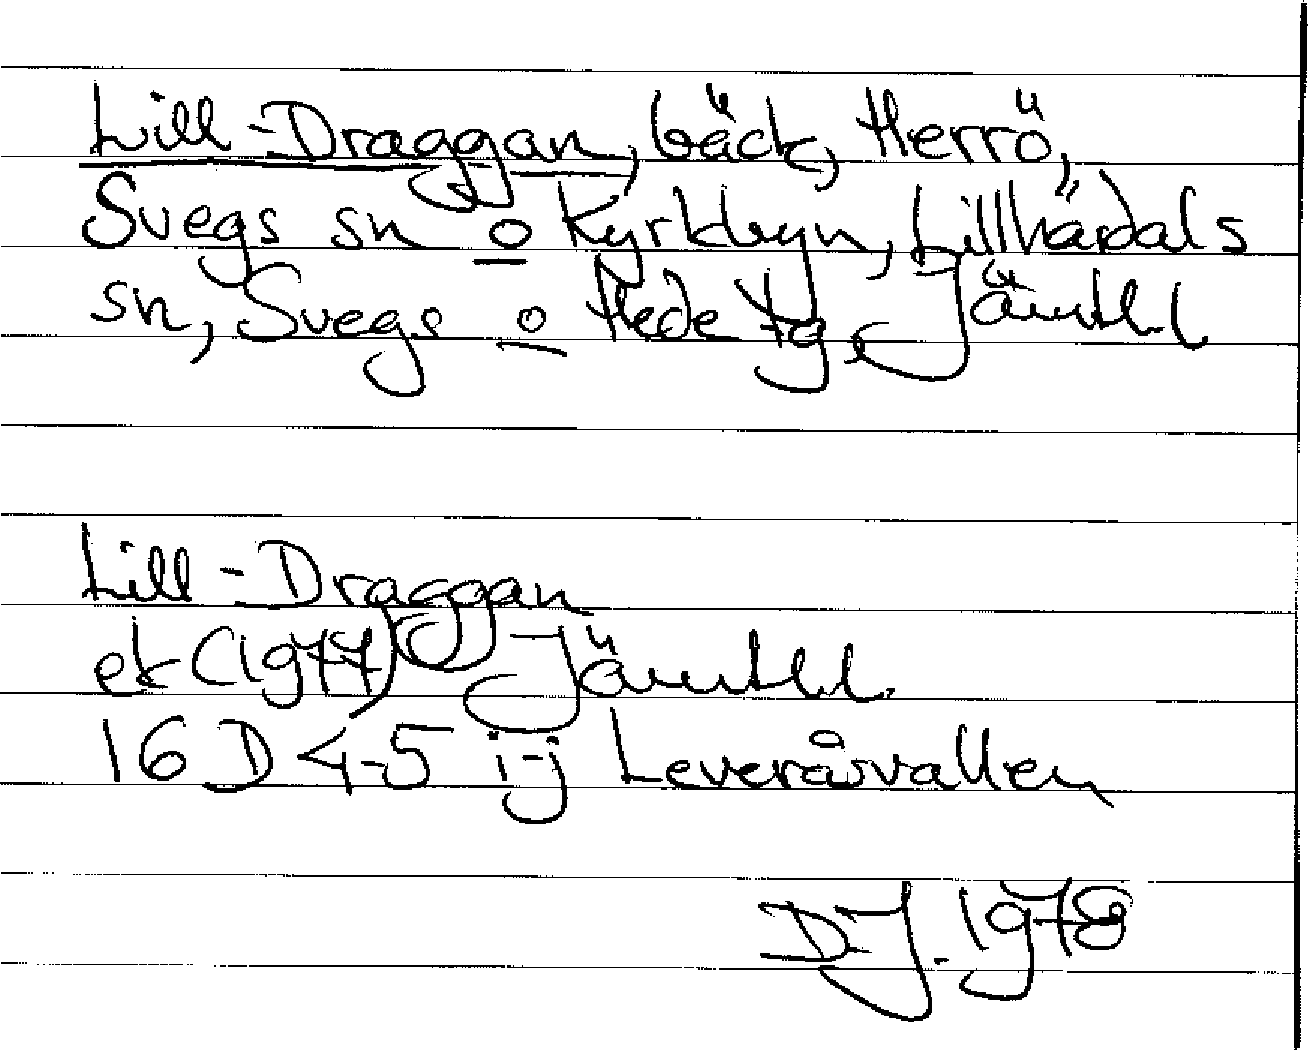 Lill-Draggan, bäck, Herrö,
Svegs sn o Kyrkbyn, Lillhärdals
sn, Svegs o Hede tg, Jämtl. l
Lill-Draggan
ek (1977) Jämtl. l.
16 D 4-5 i-j Leveråsvallen
DJ. 1978